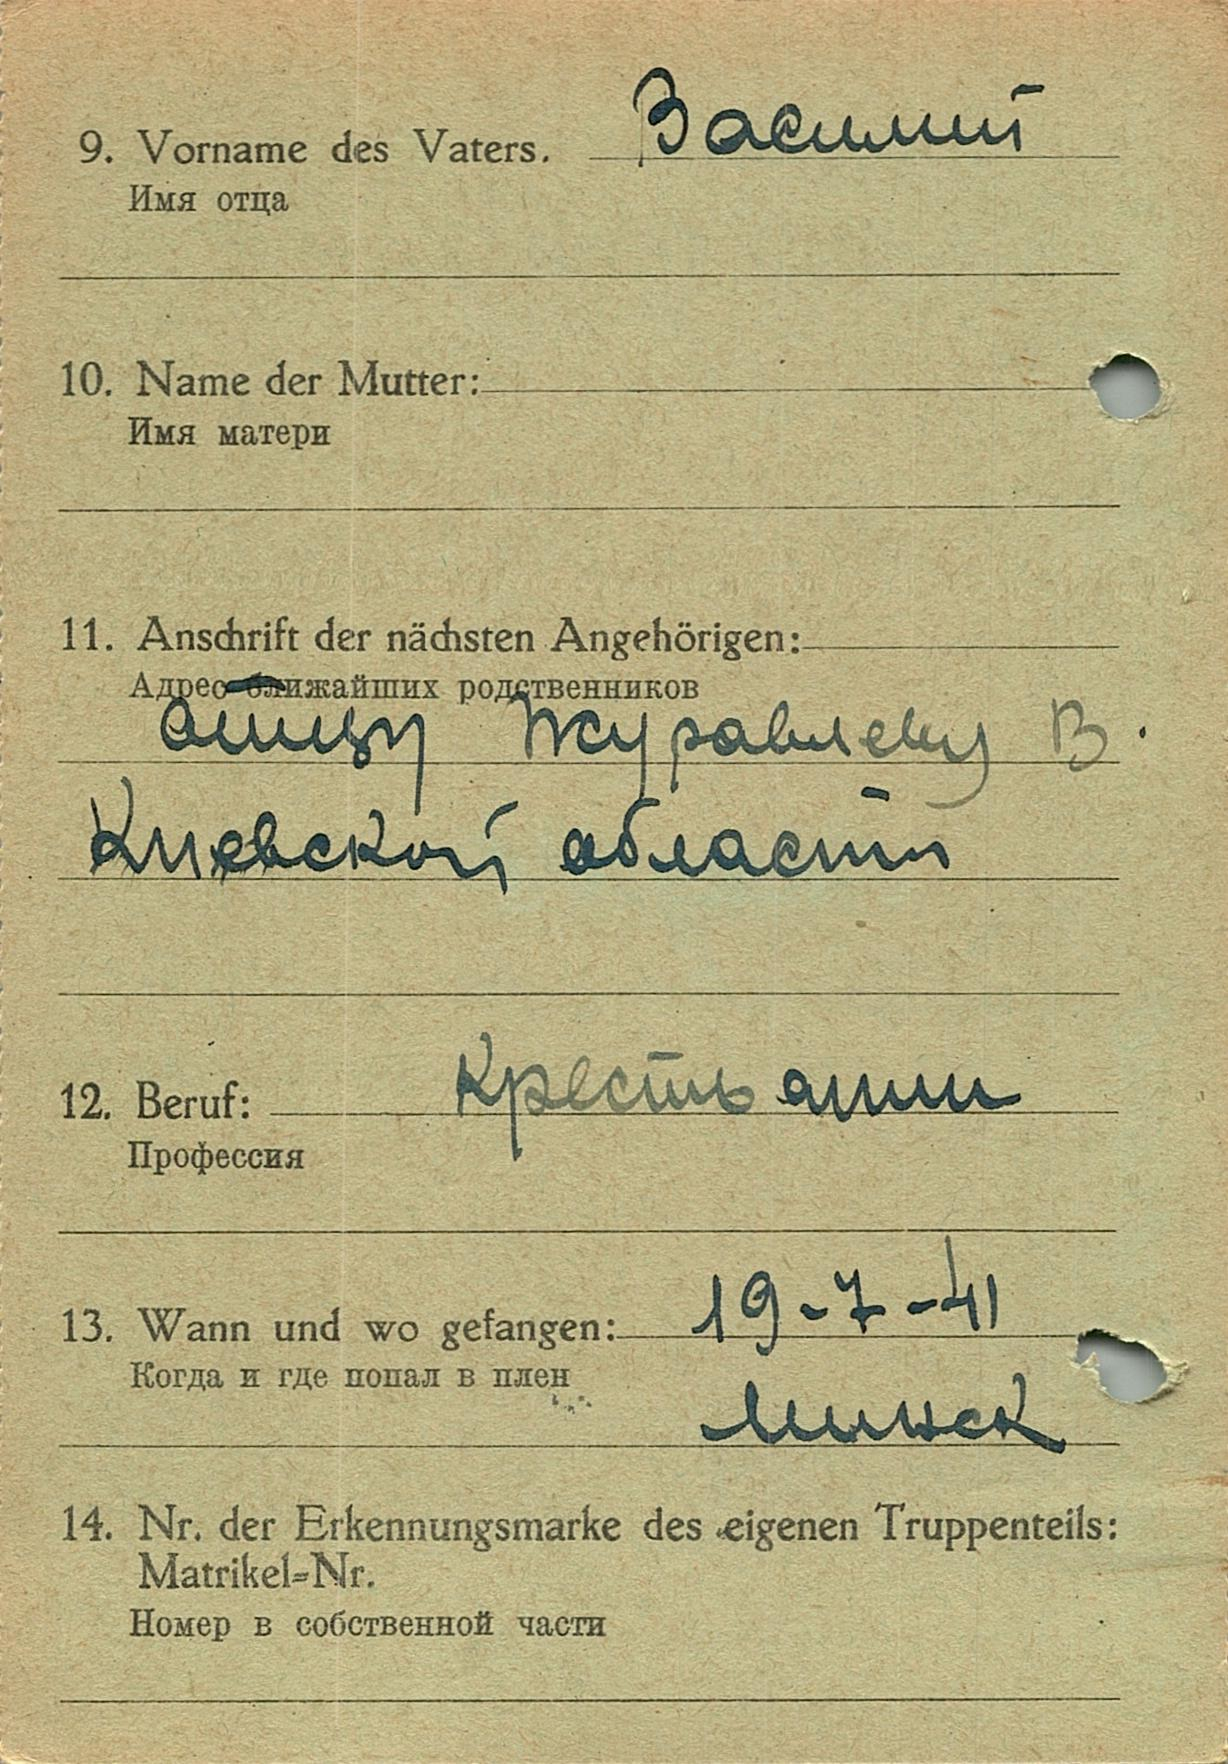 9. Vorname des Vaters. Василий
Имя отца
10. Name der Mutter:
Имя матери
11. Anschrift der nächsten Angehörigen:
Адрес ближайших родственников
отцу Журавлеву В.
Киевской области
12. Beruf: Крестьянин
Профессия
13. Wann und wo gefangen: 19-7-41
Когда и где попал в плен
Минск
14. Nr. der Erkennungsmarke des eigenen Truppenteils:
Matrikel-Nr.
Номер в собственной части